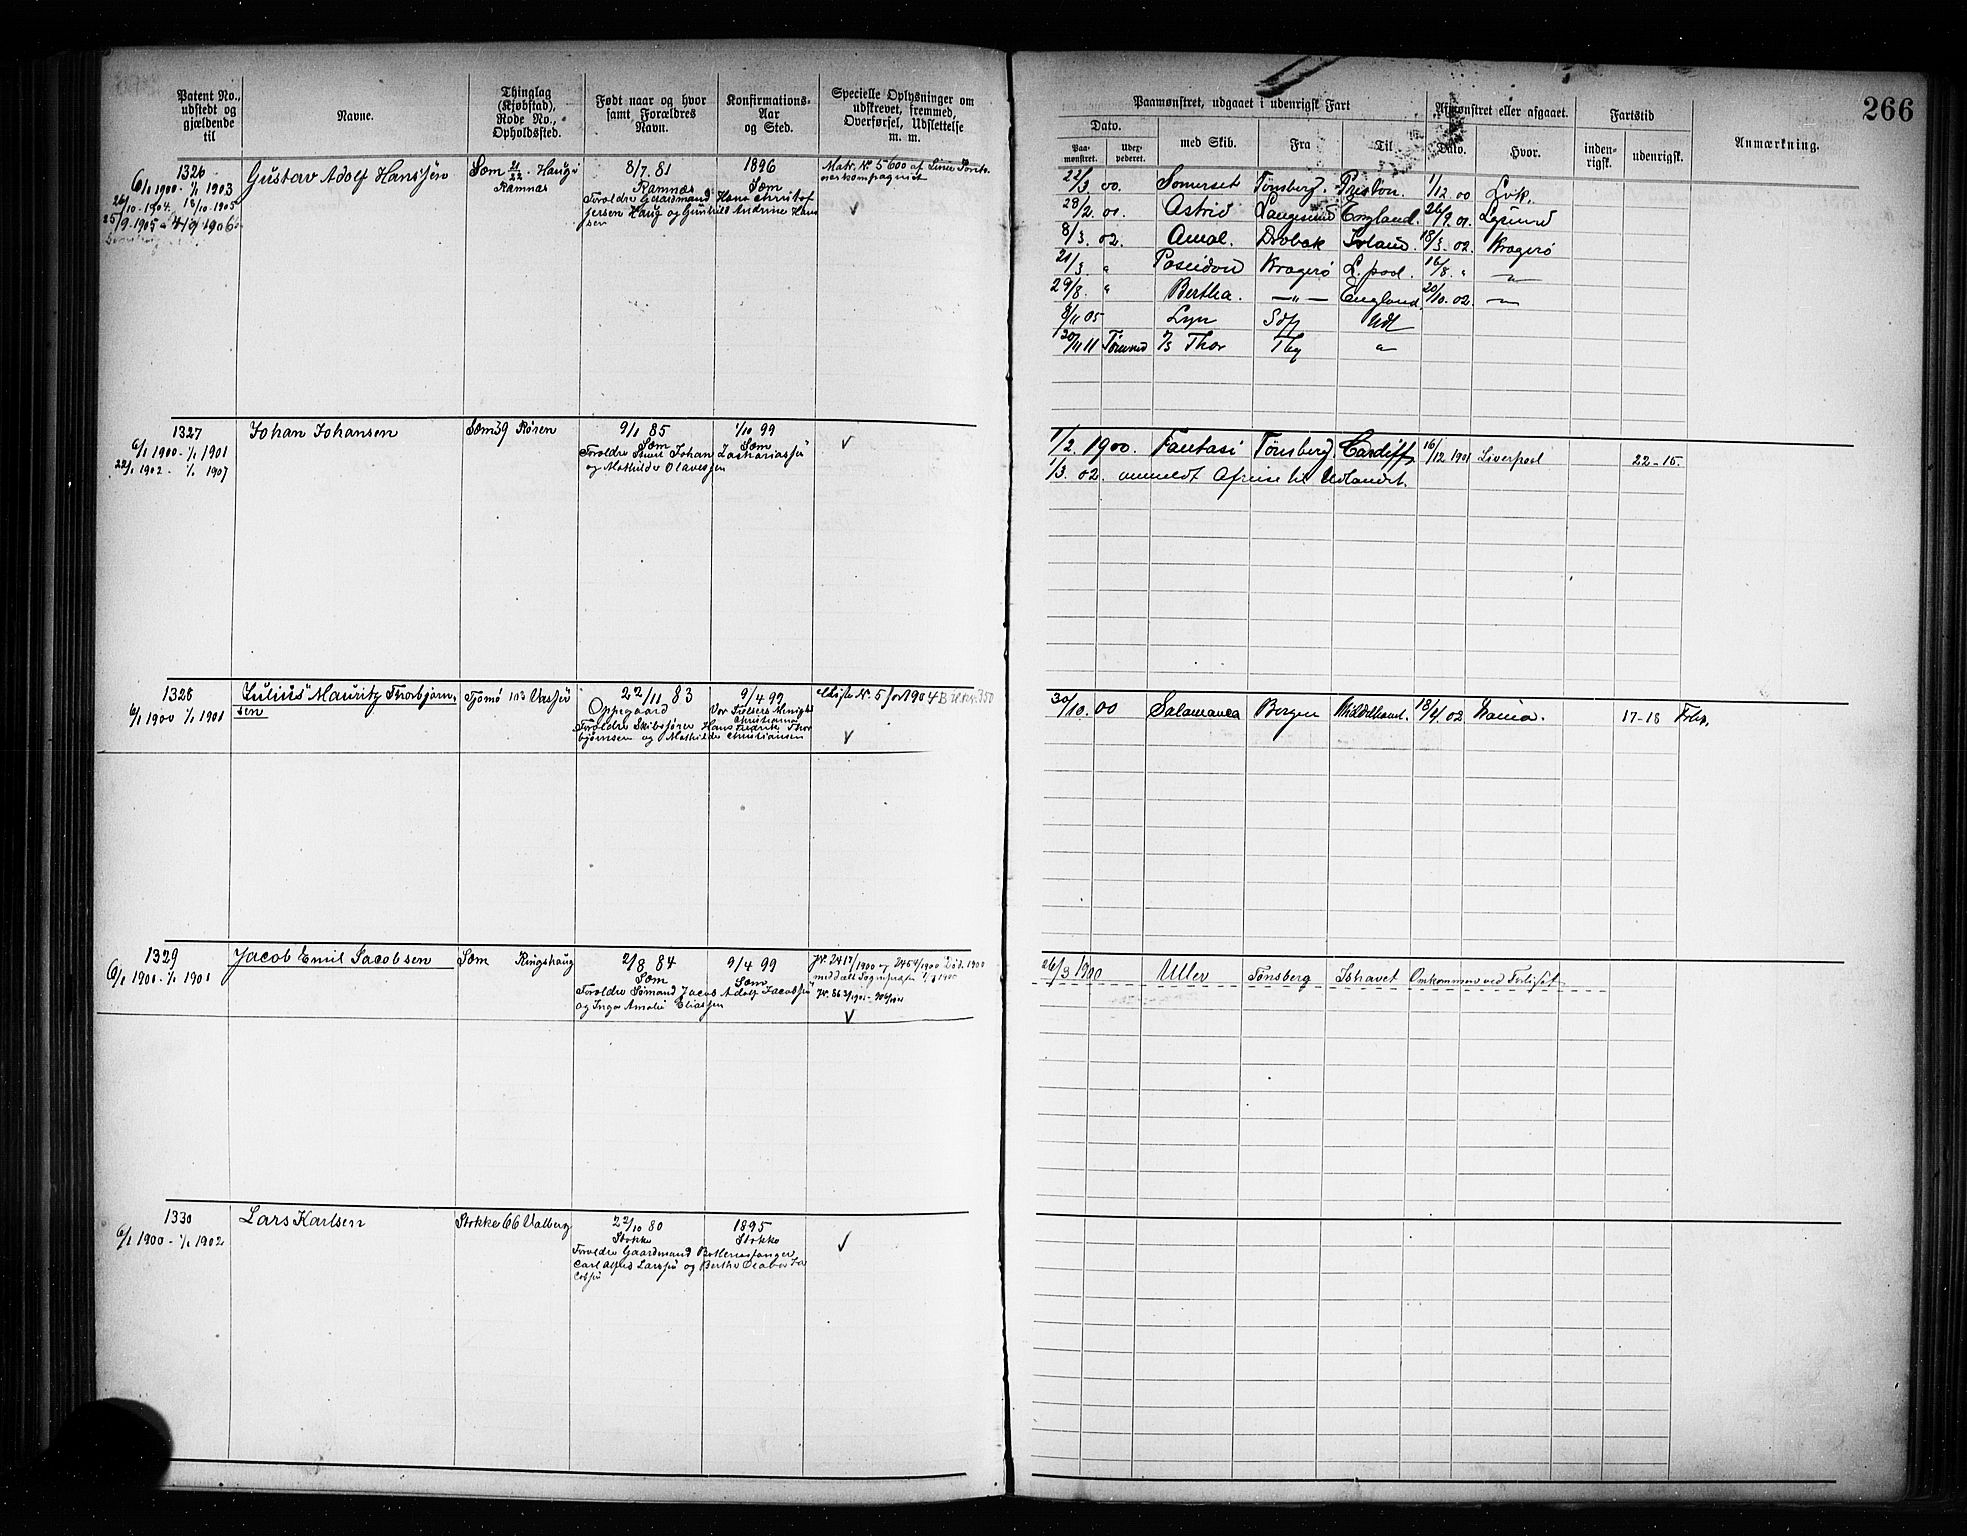 266
Patent No., udstedt og gjældende til
Navne.
Thinglag (Kjøbstad), Rode No., Opholdssted.
Født naar og hvor samt Forældres Navn.
Konfirmations-Aar og Sted.
Specielle Oplysninger om udskrevet, fremmed, Overførsel, Udslettelse m. m.
Paamønstret, udgaaet i udenrigsk Fart
Afmønstret eller afgaaet.
Fartstid
Anmærkning.
Dato.
Paa-mønstret.
med Skib.
Fra
Til
Dato.
Hvor.
inden-rigsk.
udenrigsk.
1326
6/1 1900 - 1/1 1903
26/10-1904, 18/10-1905
25/9-1905
Gustav Adolf Hanssen
Sæm 21/22 - Haugi
Ramnæs
8/7. 81
Ramnæs
1896
Sæm
Forældre Gaardmand Hans Christof
fersen Haug og Gunhild Andrine Hans
sen
Matr. N. 5600 af Linie
22/3 00. Somerset Tønsberg. Preston. 1/12 00 Lvk.
28/2. 01. Astrid Langesund England. 26/9. 01.
8/3. 02. Amal. Drøbak Irland. 18/3. 02. Kragerø
21/3 " Poseidon Kragerø L.pool. 16/8. " - " -
29/8. " Bertha. - " - England. 20/10. 02. - " -
9/11 05 Lyn Sdfj Udl
30/11 11 Thor Tbg "
1327
6/1 1900 - 1/1 1901
22/1 1902 - 1/1 1907
Johan Johansen
Sæm 39 Røren
9/1 85
Sæm
1/10 99
Sæm
Forældre Johan Zachariassen
og Mathilde Olavessen
1/2. 1900. Fantasi Tønsberg. Cardiff 16/12 1901 Liverpool 22-15.
1/3. 02. anmeldt Afreise til Udlandet.
1328
6/1 1900 1/1 1901
Julius Mauritz Thorbjørn-
sen
Tjømø 103 Vasser
22/11 83
Oppegaard
9/4 99
Vor Frelsers Menigh
Christiania
Forældre Skibsfører Hans Fredrik Thor
bjørnsen og Mathilde Christiansen
N. 5 for 1904
30/10. 00 Salamanca Bergen Middelhavet. 18/4/02 17-18
1329
6/1 1900 - 1/1 1901
Jacob Emil Jacobsen
Sæm Ringshaug
2/8 84
Sæm
9/4 99
Sæm
Forældre Sømand Jacob Adolf Jacobsen
og Inga Amalie Eliassen
26/3 1900 Uller Tønsberg Ishavet Omkommen ved Forliset
1330
6/1 1900 - 1/1 1902
Lars Karlsen
Stokke 66 Valberg
22/10 80
Stokke
1895
Stokke
Forældre Gaardmand Bottlenosfanger
Carl Alfred Larssen og Berthe Olava Ja
cobsen